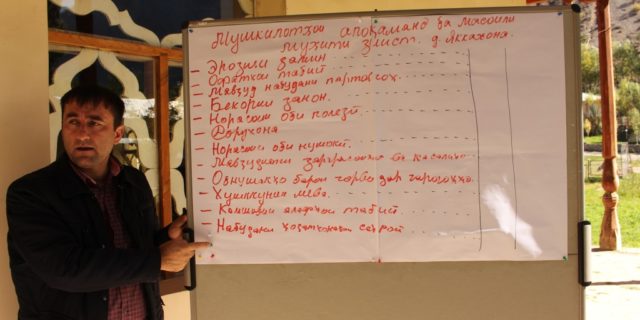 Мушкилотҳои алоқаманд ба масоили
муҳити зист. д. Яккахона.
– Эрозияи замин
– Офатҳои табиӣ
– Мавҷуд набудани партовгоҳ
– Бекории занон.
– Норасоии оби полезӣ
– Дорухона
– Норасоии оби нушокӣ.
– Обнушакҳо барои чорво дар чарогоҳҳо
– Хушккунии мева.
– Камшавии алафҳои табиӣ.
– Набудани